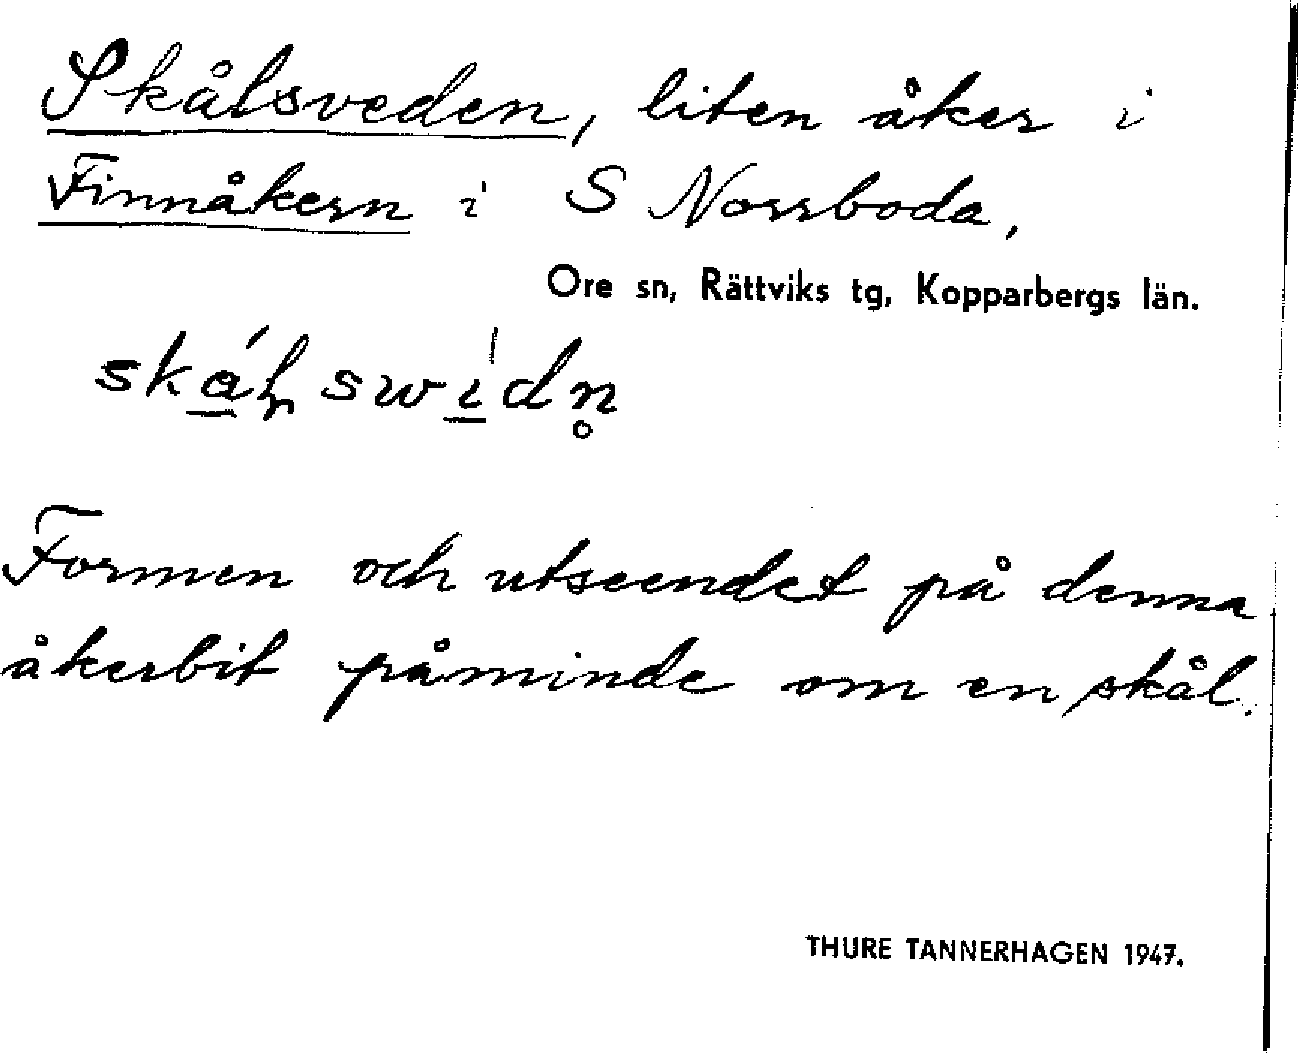 Skålsveden, liten åker i
Finnåkern i S Norrboda,
Ore sn, Rättviks tg, Kopparbergs län.
Formen och utseendet på denna
åkerbit påminde om en skål.
THURE TANNERHAGEN 1947.